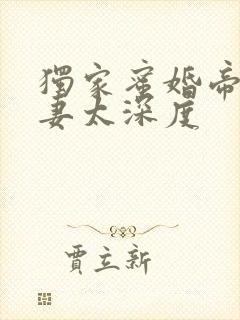 獨家蜜婚帝
妻太深度
賈立新